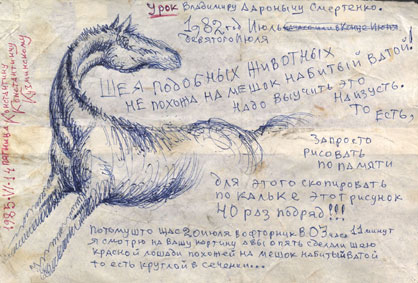 Урок Владимиру Ароновичу Смертенко.
1982 год Июль
девятого Июля
Шея подобных животных
не похожа на мешок набитый ватой!
надо выучить это
наизусть.
то есть,
запросто
рисовать
по памяти
для этого скопировать
по кальке этот рисунок
40 раз подряд!!!
потомушто щас 20 июля вофторник в 03 часа 11 минут
я смотрю на вашу кортину а вы опять сделали шею
красной лошади похожей на мешок набитый ватой
то есть круглой в сечении...
1985•VI•14 пятница Константину
Константину
Кузьминскому